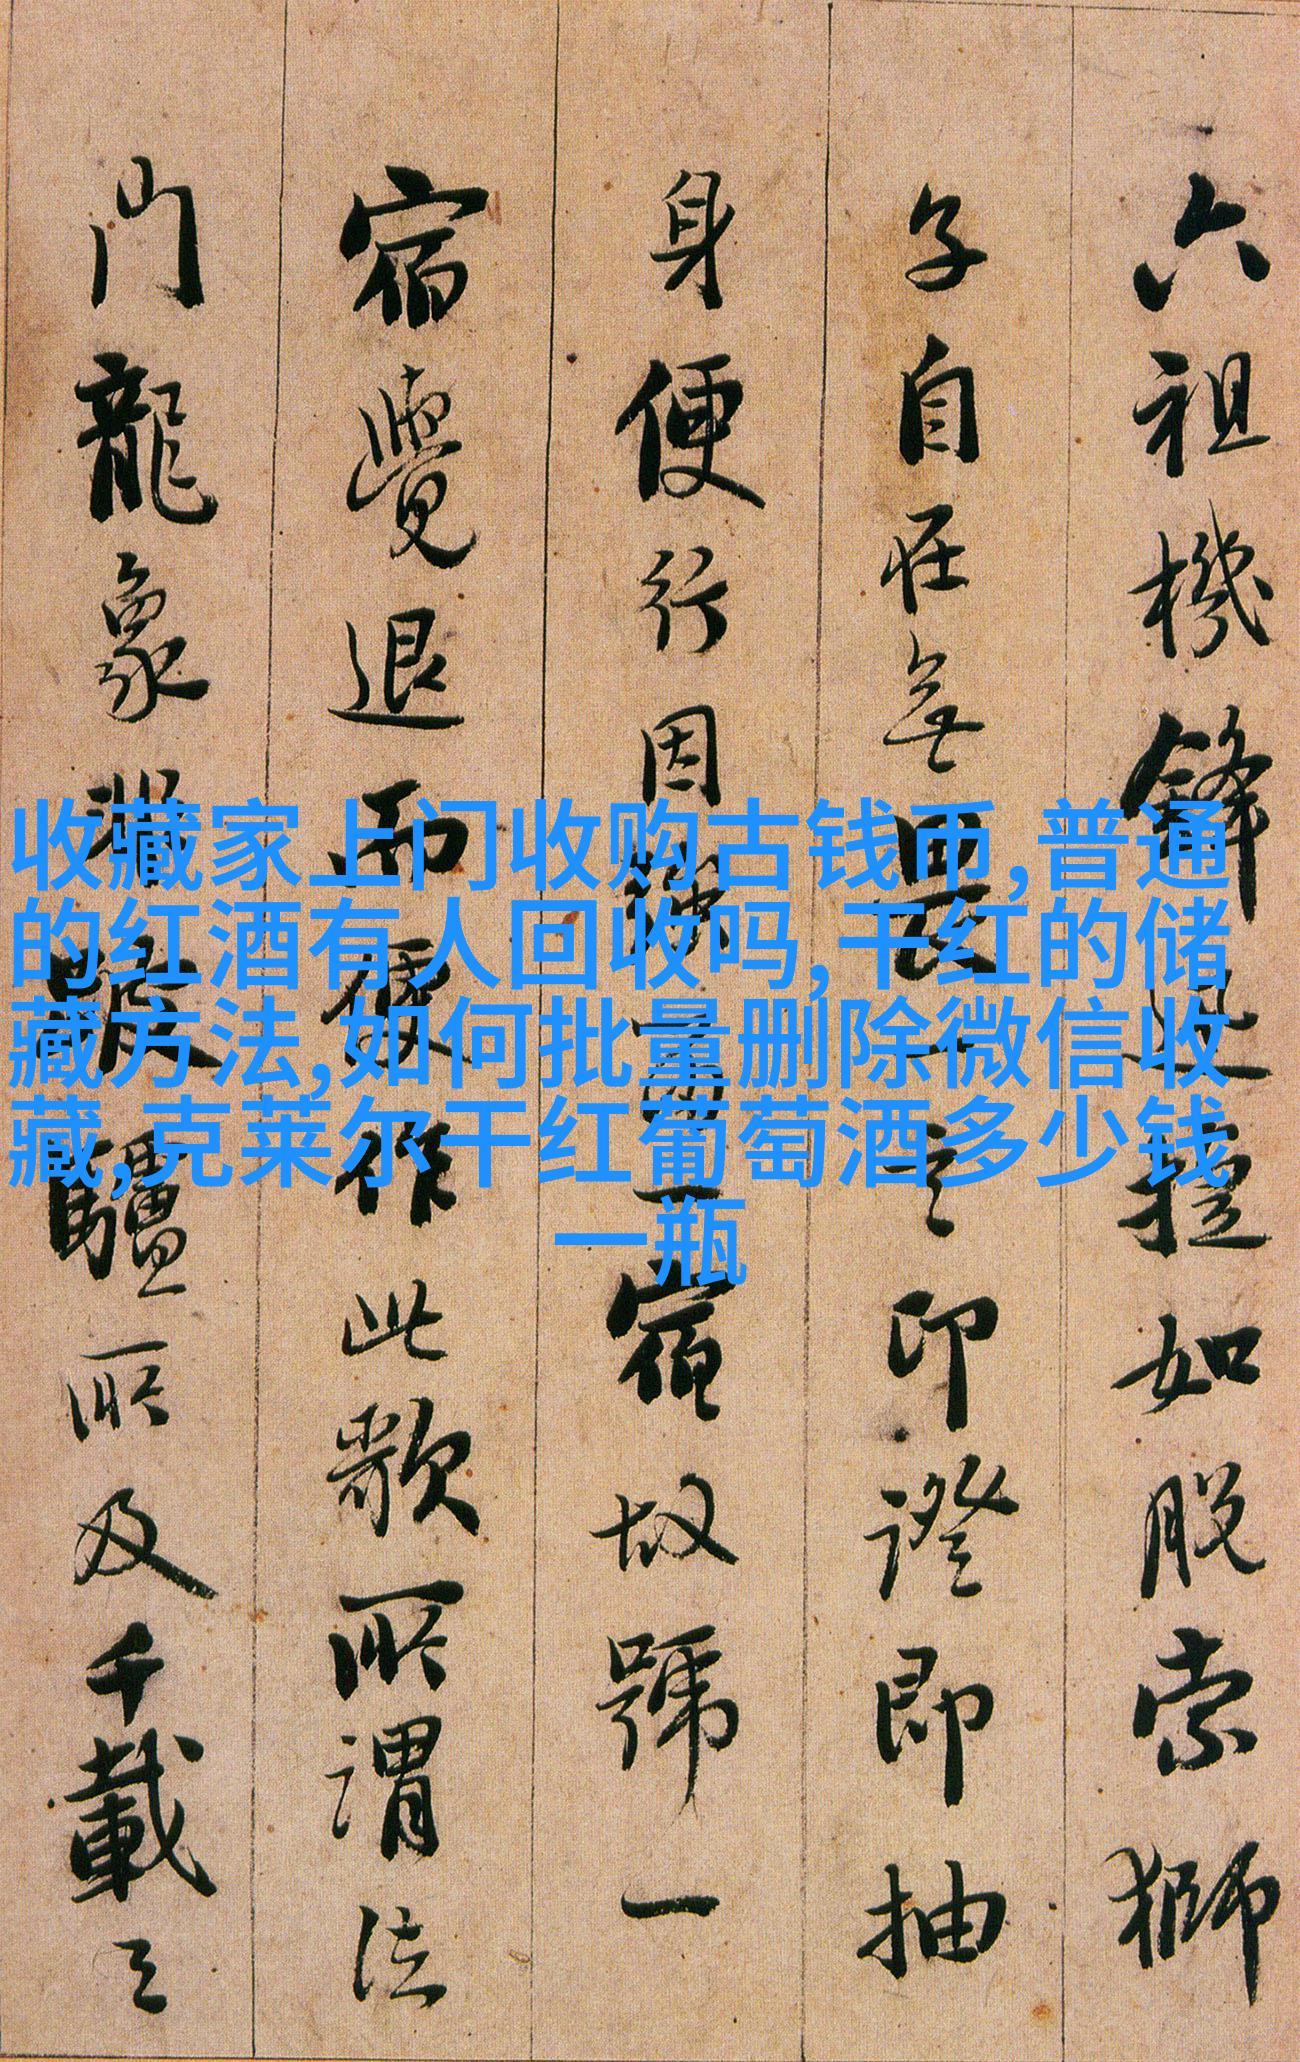 六祖機鋒迅捷如脱索獅
子自在無畏之印證即抽
身便行因強留一宿故號一
宿覺退而屢作此歌所謂法
门龍象 所及千載之
收藏家上门收购古钱币,普通
的红酒有人回收吗,干红的储
藏方法,如何批量删除微信收
藏,克莱尔干红葡萄酒多少钱
一瓶